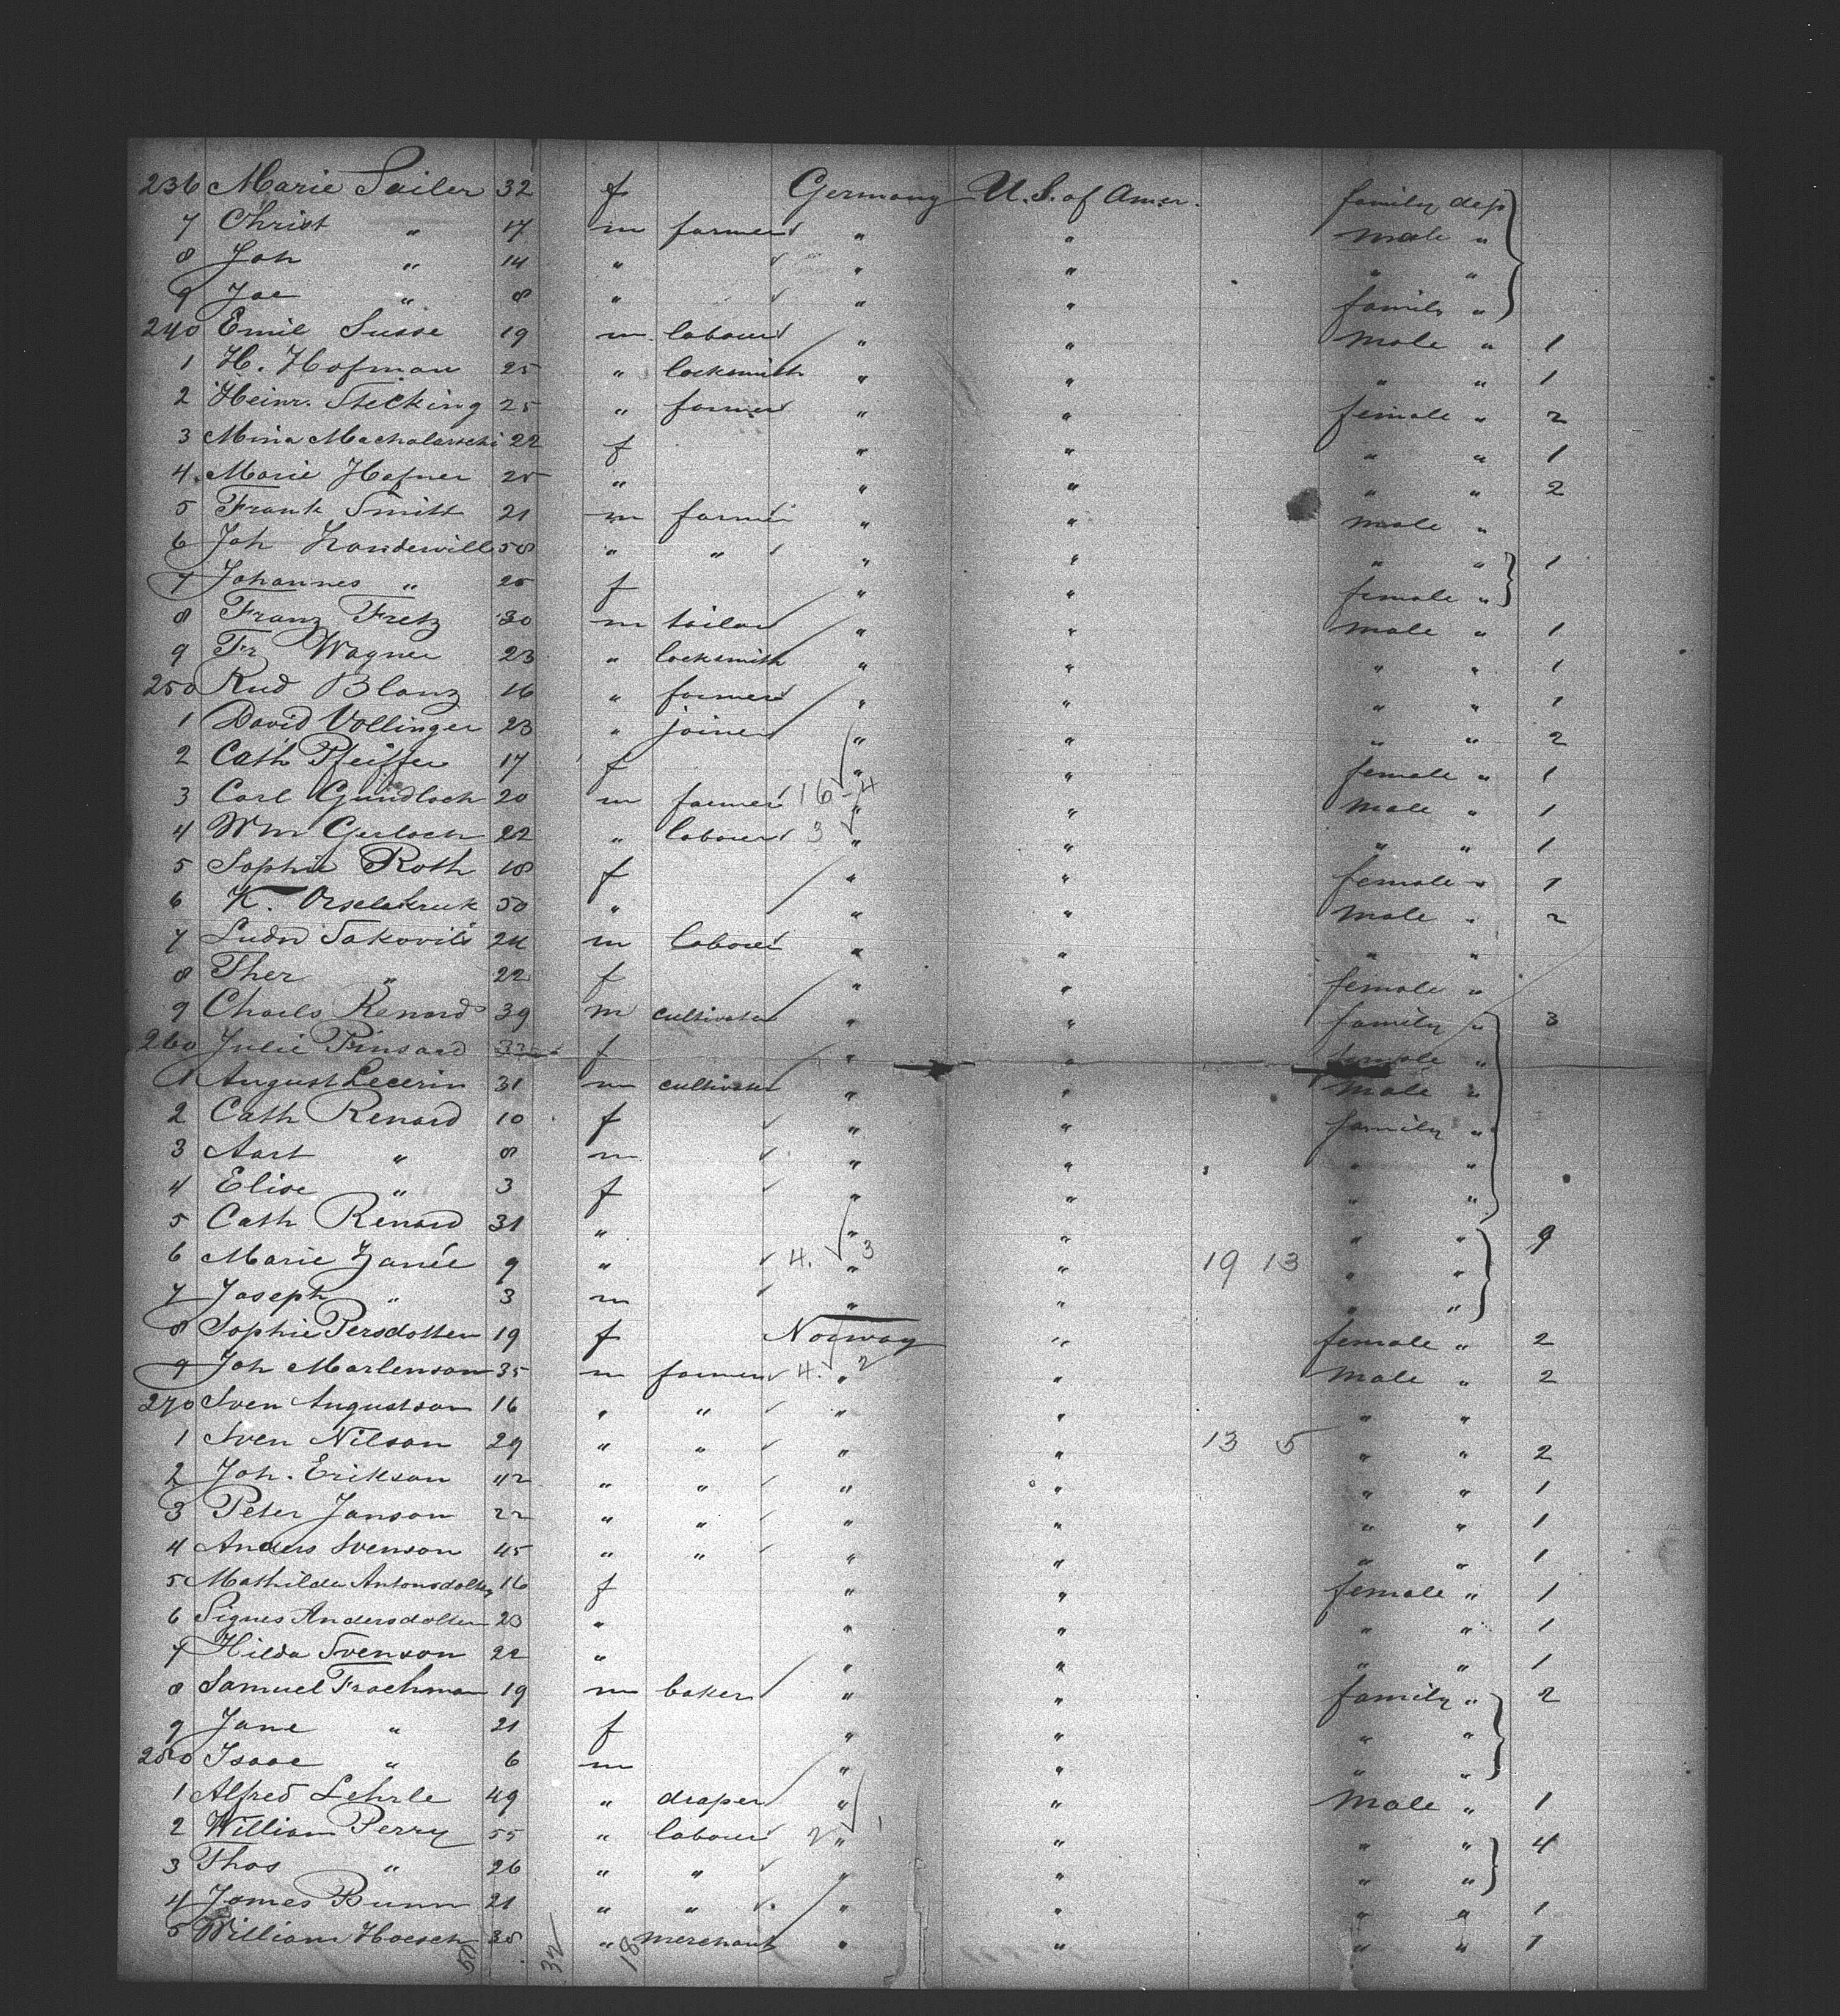 236 Marie Sailer 32 f Germany U.S. of Amer. family dep
7 Christ " 17 m farmer " " male "
8 Joh " 14 " " " " "
9 Jac " 8 " " " family "
240 Emil Susse 19 m labourer " " male " 1
1 H. Hofman 25 " locksmith " " " " 1
2 Heinr. Stecking 25 " farmer " " female " 2
3 Mina 22 f " " " " 1
4 Marie Hafner 25 " " " " " 2
5 Frank Smith 21 m farmer " " male "
6 Joh 58 " " " " " " 1
7 Johannes " 25 f " " female "
8 Franz Fretz 30 m tailor " " male " 1
9 Fr Wagner 23 " locksmith " " " " 1
250 Rud Blanz 16 " farmer " " " " 1
1 David Vollinger 23 " joiner " " " " 2
2 Cath Pfeiffer 17 f " " female " 1
3 Carl Gundloch 20 m farmer 16 - 4 " " male " 1
4 Wm Gerloch 22 " labourer 3 " " " " 1
5 Sophie Roth 18 f " " female " 1
6 K. 50 " " " male " 2
7 Ludw 24 m labourer " " " "
8 Ther " 22 f " " female "
9 Charls Renard 39 m cultivator " " family " 3
260 Julie Pinsard 32 f " " female "
1 August Lecerin 31 m cultivator " " male "
2 Cath Renard 10 f " " family "
3 Aart " 8 m " " " "
4 Elise " 3 f " " " "
5 Cath Renard 31 " " " " " 9
6 Marie 9 " 4. 3 " " 19 13 " "
7 Joseph " 3 m " " " "
8 Sophie Persdotter 19 f Norway " female " 2
9 Joh Marlenson 35 m farmer 4. 2 " " male " 2
270 Sven Augustson 16 " " " " " "
1 Sven Nilson 29 " " " " 13 5 " " 2
2 Joh. Erikson 42 " " " " " " 1
3 Peter Janson 22 " " " " " " 1
4 Anders Svenson 45 " " " " " " 1
5 Mathilda Antonsdotter 16 f " " female " 1
6 Signes Andersdotter 23 " " " " " 1
7 Hilda Svenson 22 " " " " " 1
8 Samuel Frachman 19 m baker " " family " 2
9 Jane " 21 f " " " "
280 Isaac " 6 m " " " "
1 Alfred Lehrle 49 " draper " " male " 1
2 William Perry 55 " labourer 2 " 1 " " " 4
3 Thos " 26 " " " " " "
4 James Bunn 21 " " " " " " 1
5 William Hoesch 38 " merchant " " " " 1
50 32 18